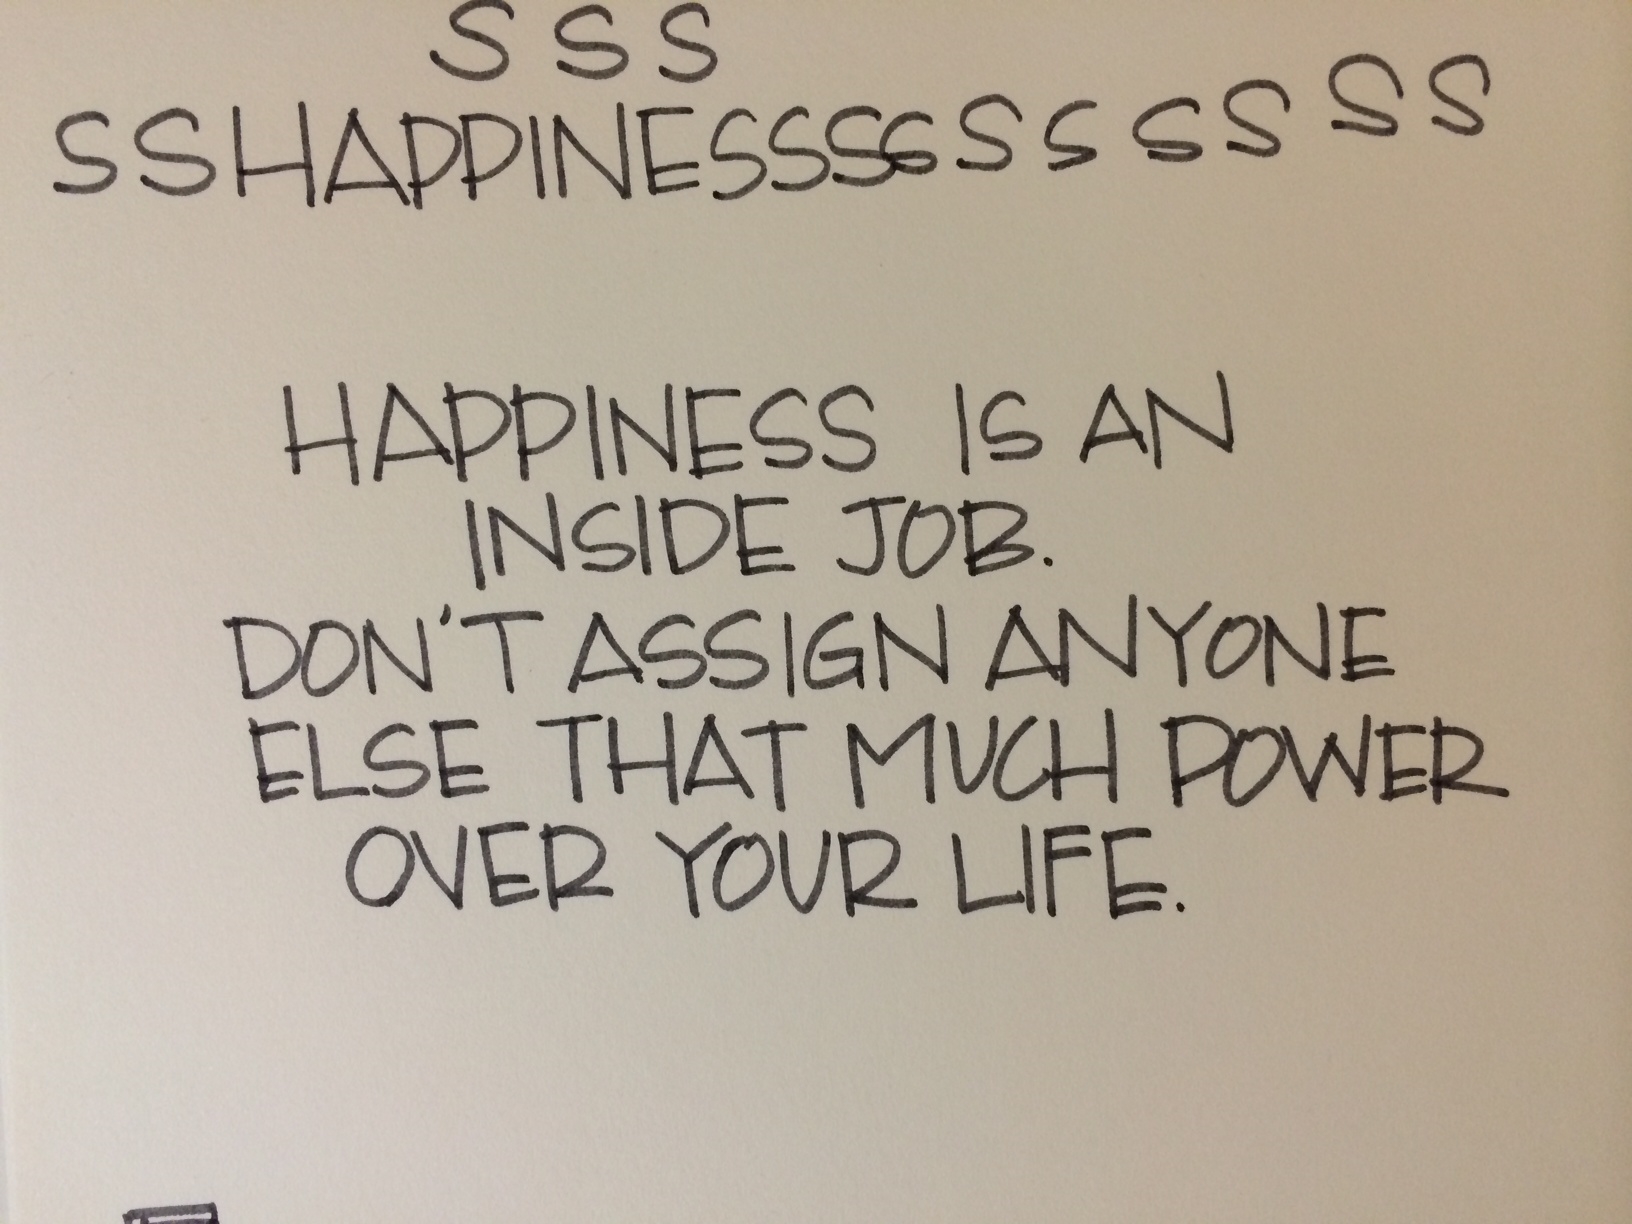 S S S
SSHAPPINESSSSSSSSSS
HAPPINESS IS AN
INSIDE JOB.
DON'T ASSIGN ANYONE
ELSE THAT MUCH POWER
OVER YOUR LIFE.